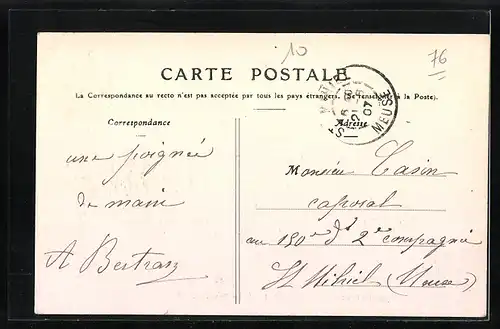 10
76
CARTE POSTALE
La Correspondance au recto n'est pas acceptée par tous les pays étrangers. (Se renseigner à la Poste).
Correspondance
Adresse
MEUSE
07
une poignée
de main
A Bertran
Monsieur Tasin
caporal
au 150e d'I 2e compagnie
St Mihiel (Meuse)